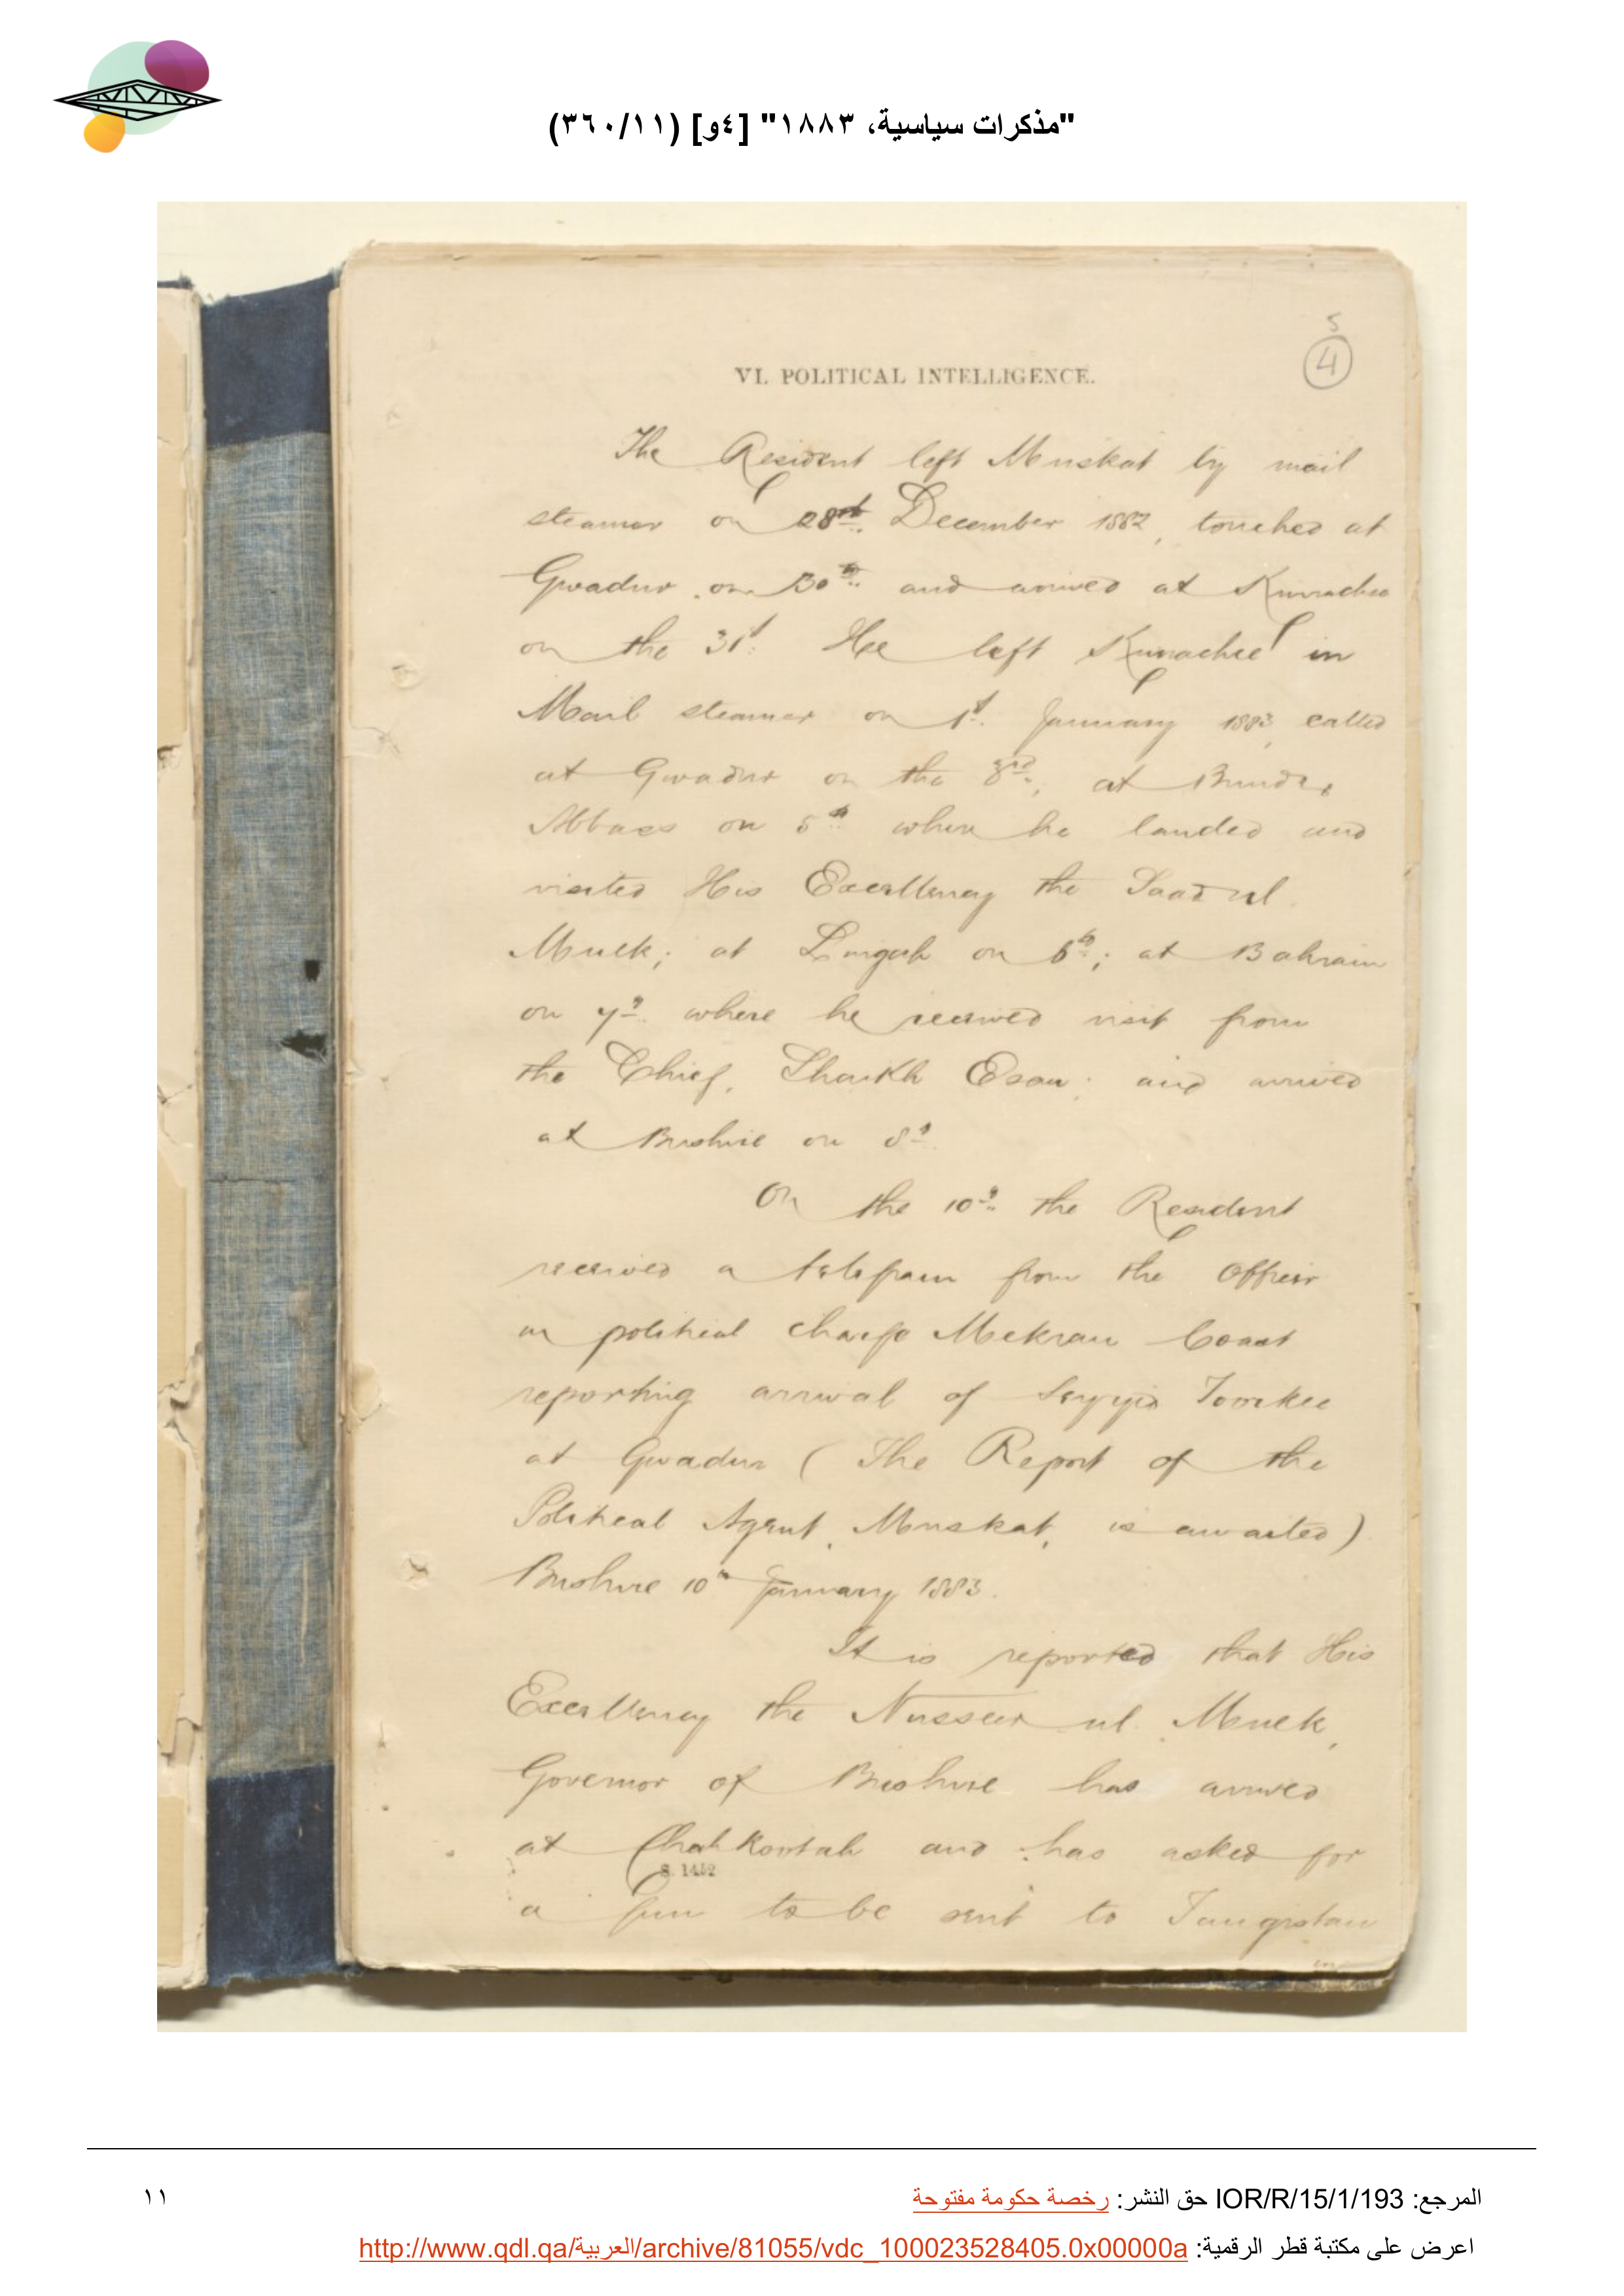 "مذكرات سياسية، ١٨٨٣" [٤و] (٣٦٠/١١)
5
4
VI. POLITICAL INTELLIGENCE.
The Resident left Muskat by mail
steamer on 28th. December 1882, touched at
Gwadur on 30th and arrived at Kurrachee
on the 31st. He left Kurrachee in
Mail steamer on 1st. January 1883, called
at Gwadur on the 3rd, at Bunder
Abbass on 5th where he landed and
visited His Excellency the Saad ul
Mulk; at Lingah on 6th; at Bahrain
on 7th where he received visit from
the Chief, Shaikh Esau; and arrived
at Bushire on 8th
On the 10th the Resident
received a telegram from the Officer
in political charge Mekran Coast
reporting arrival of Seyyid Toorkee
at Gwadur (The Report of the
Political Agent, Muskat, is awaited)
Bushire 10th January 1883.
It is reported that His
Excellency the Nusseer ul Mulk,
Governor of Bushire has arrived
at Chahkootah and has asked for
S. 1452
a gun to be sent to Tangistan
المرجع: IOR/R/15/1/193 حق النشر: رخصة حكومة مفتوحة
١١
اعرض على مكتبة قطر الرقمية: http://www.qdl.qa/العربية/archive/81055/vdc_100023528405.0x00000a